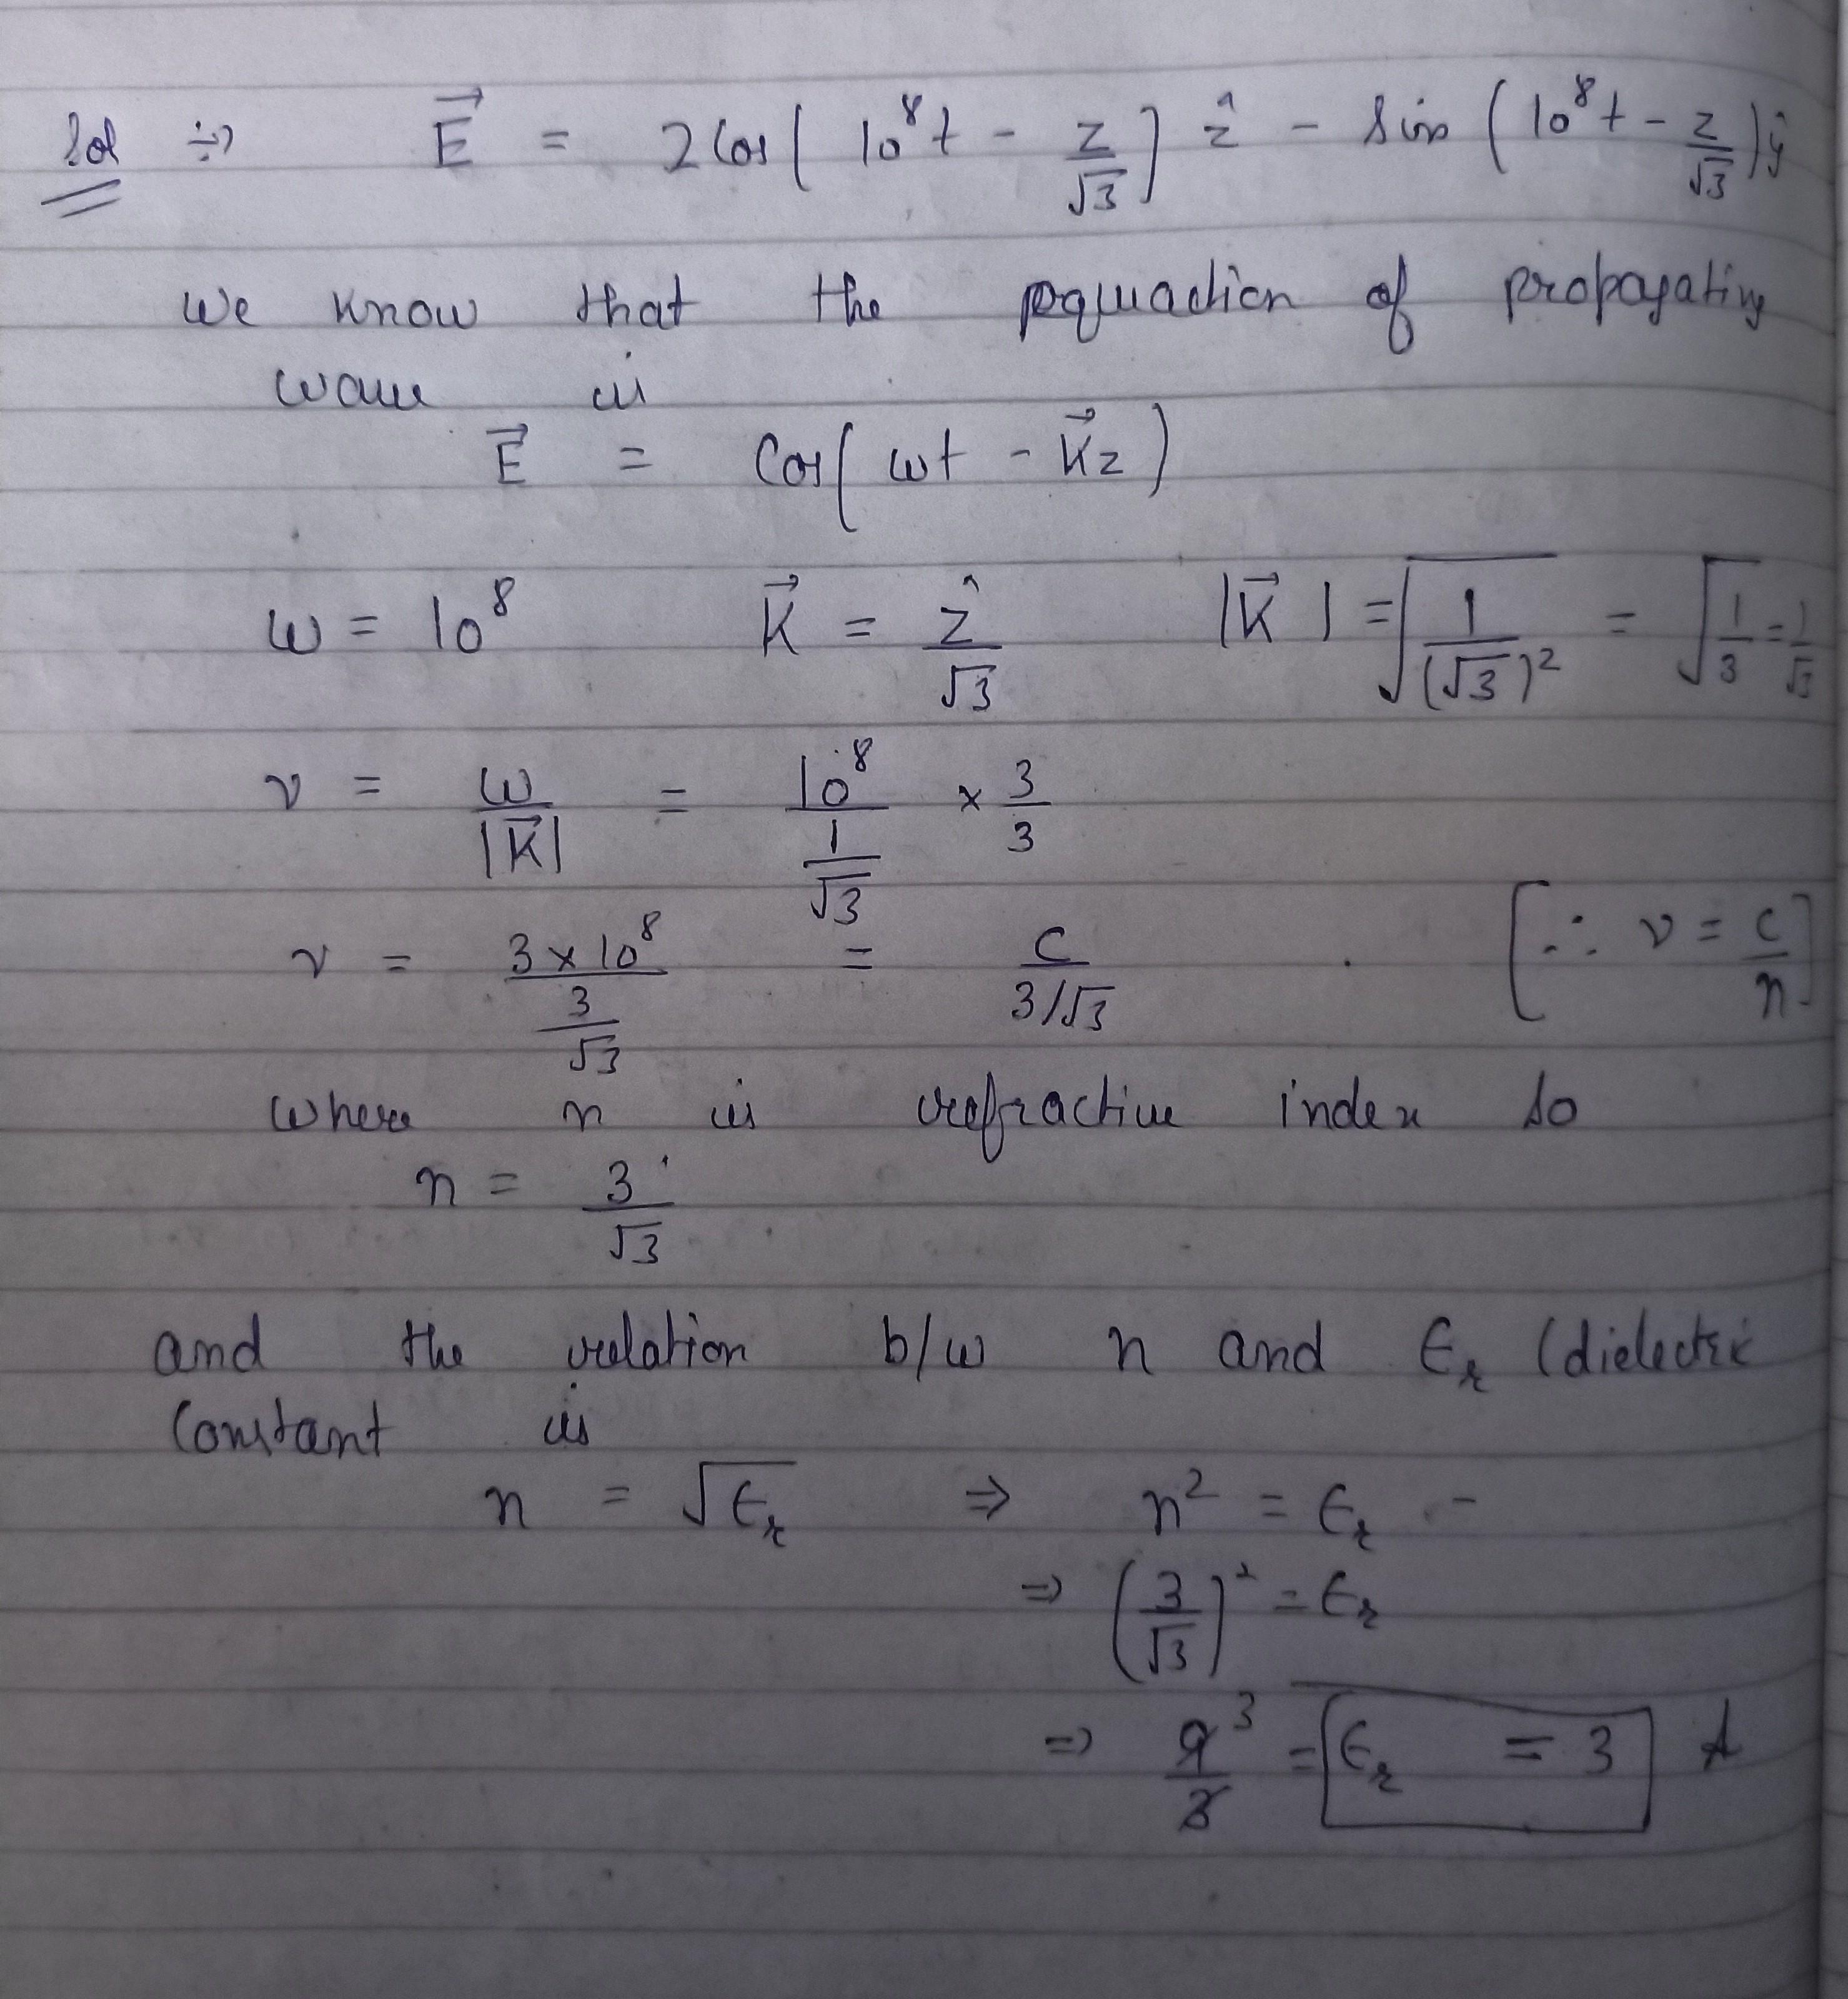 Sol ÷) E⃗ = 2 Cos( 10⁸t - z/√3 ) ẑ - Sin ( 10⁸t - z/√3 ) ŷ
We know that the equation of propagating
wave is
E⃗ = Cos( ωt - K⃗z )
ω = 10⁸ K⃗ = ẑ/√3 |K⃗| = √(1/(√3)²) = √(1/3) = 1/√3
v = ω/|K⃗| = 10⁸/(1/√3) × 3/3
v = (3 × 10⁸)/(3/√3) = C/(3/√3) [∴ v = C/n]
where n is refractive index so
n = 3/√3
and the relation b/w n and ϵr (dielectric
Constant is
n = √ϵr ⇒ n² = ϵr -
⇒ (3/√3)² = ϵr
⇒ 9/3 3 = ϵr = 3